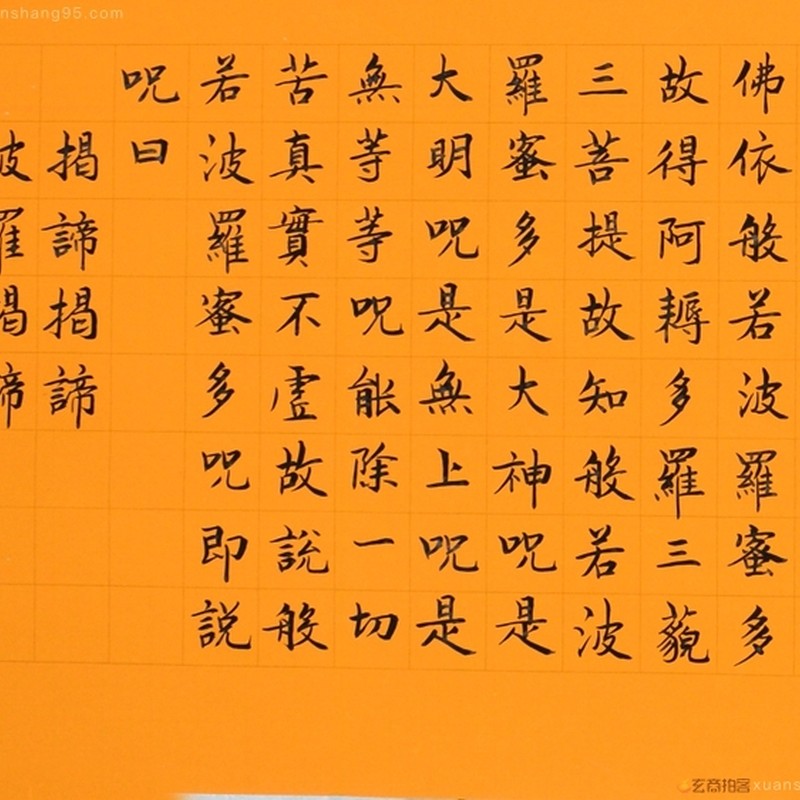 佛依般若波羅蜜多
故得阿耨多羅三藐
三菩提故知般若波
羅蜜多是大神呪是
大明呪是無上呪是
無等等呪能除一切
苦真實不虛故說般
若波羅蜜多呪即說
呪曰
揭諦揭諦
波羅揭諦
nshang95.com
玄商拍客
xuans